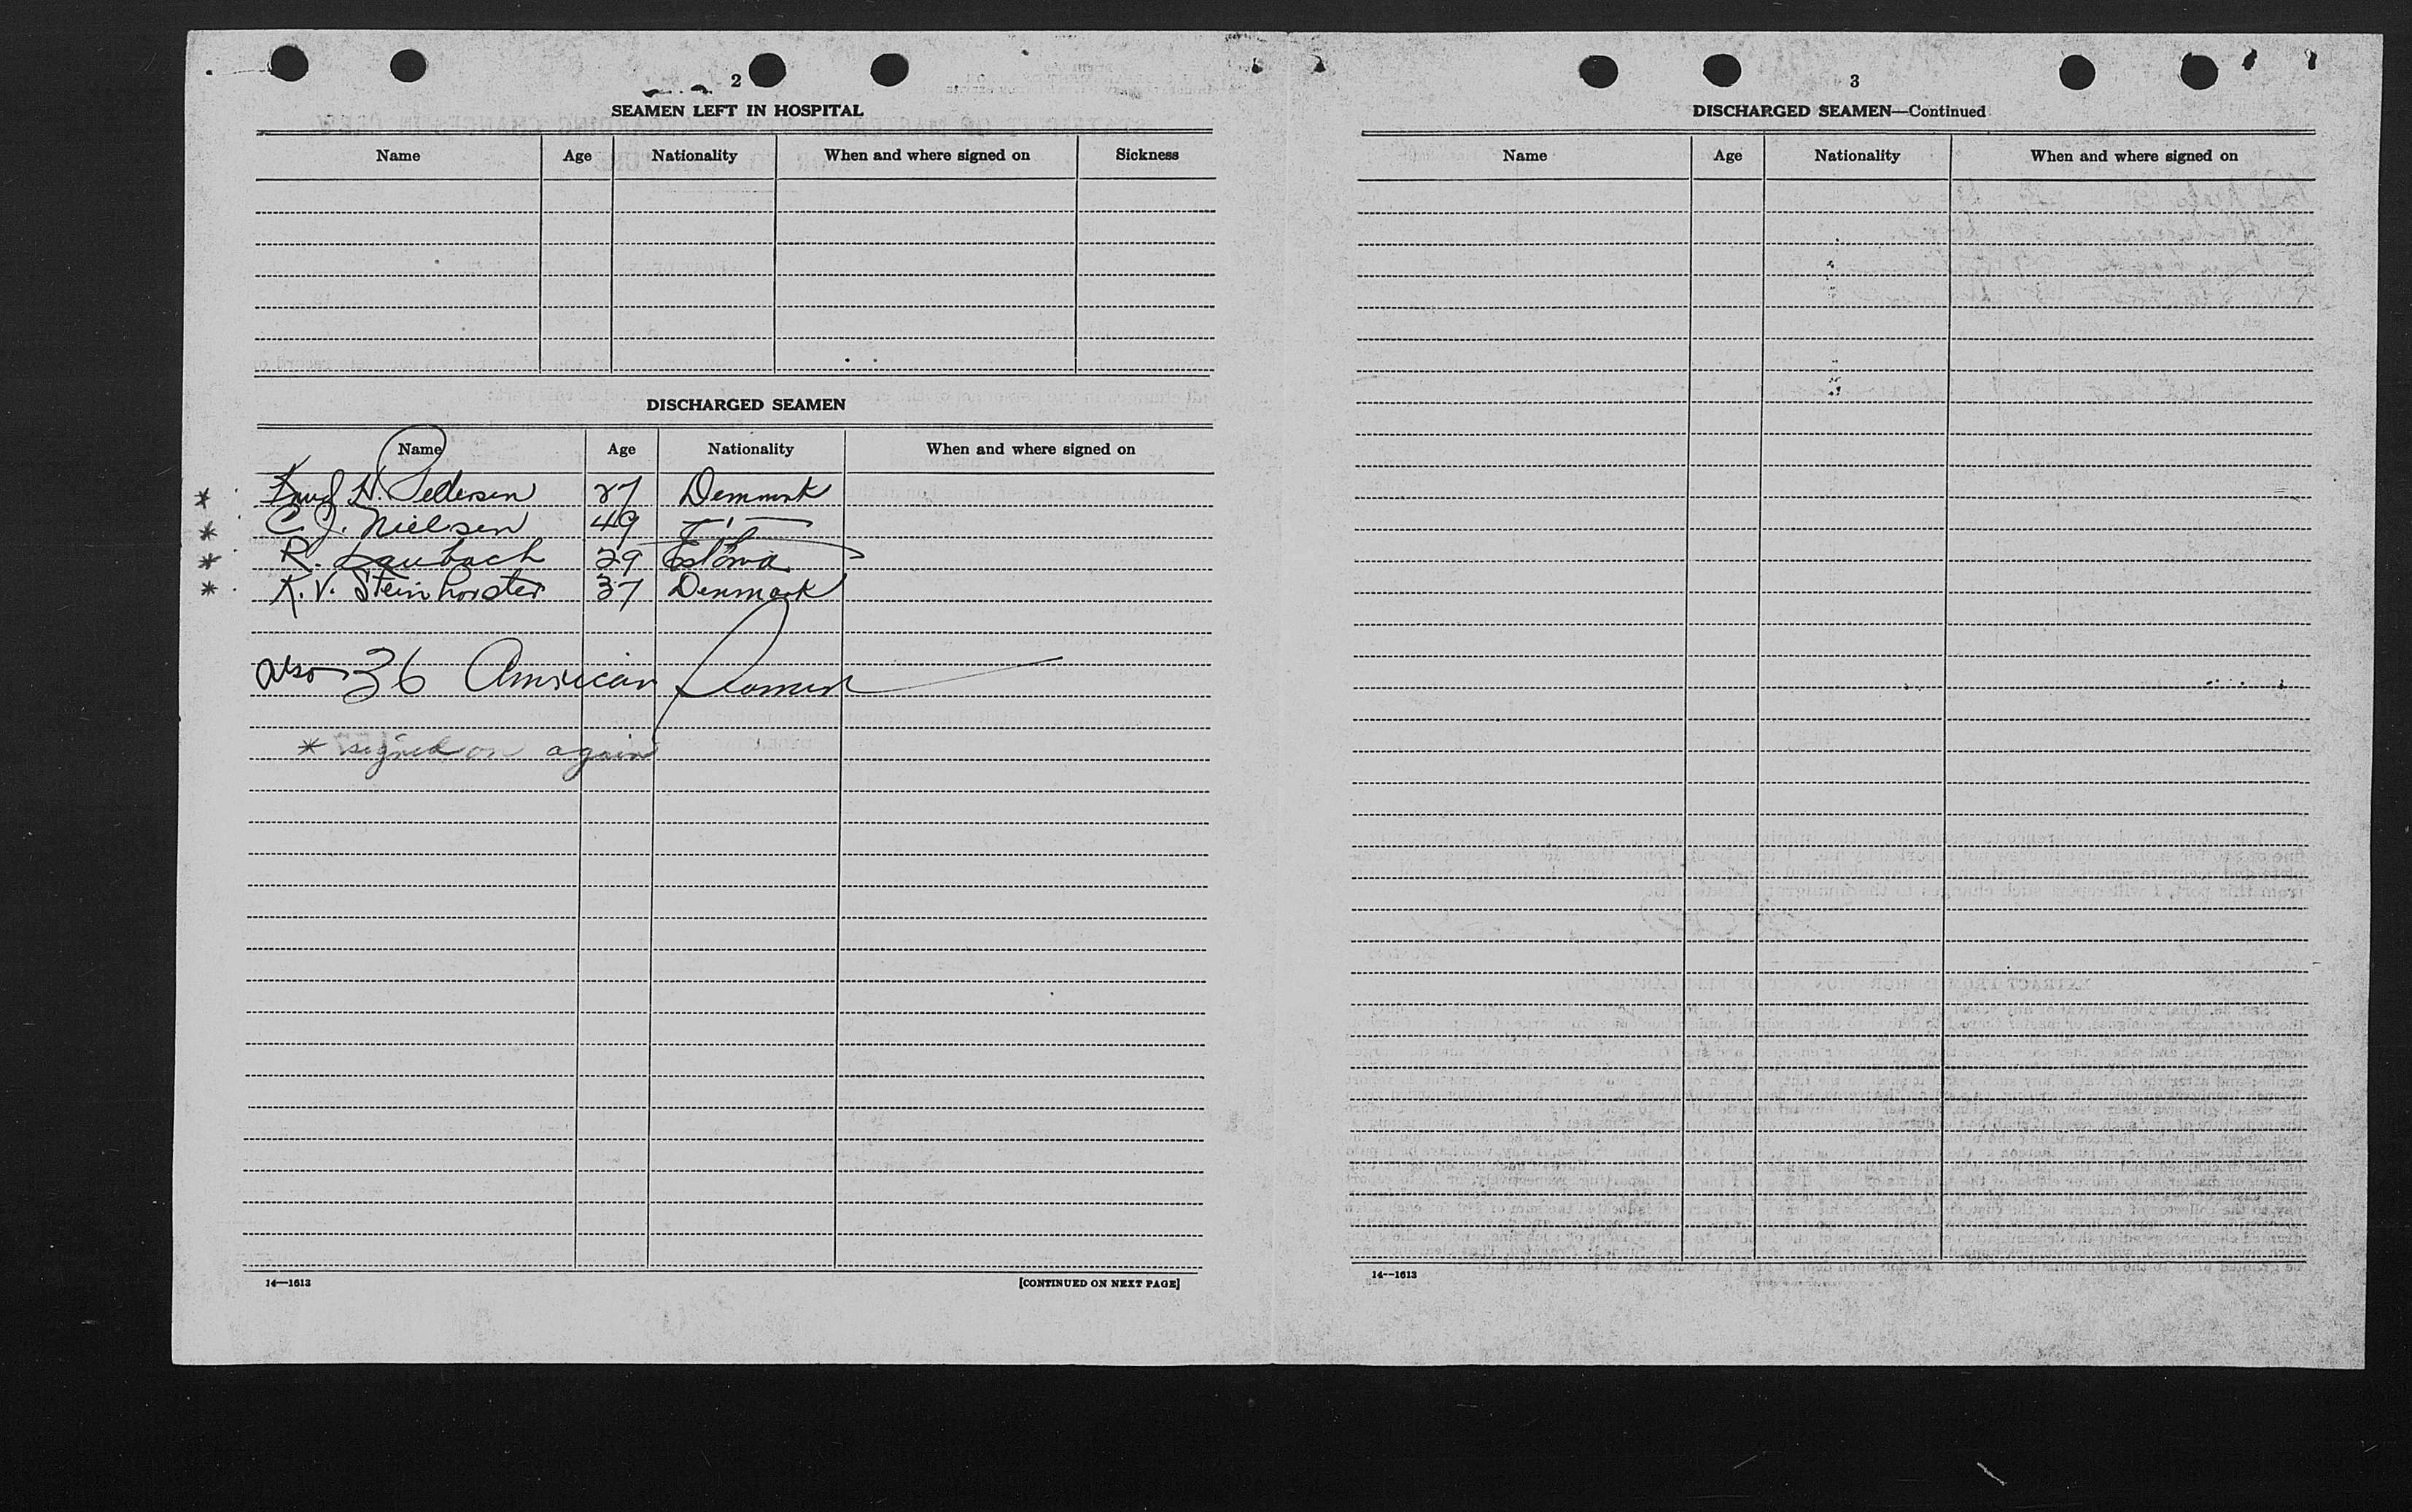 2
SEAMEN LEFT IN HOSPITAL
Name Age Nationality When and where signed on Sickness
DISCHARGED SEAMEN
Name Age Nationality When and where signed on
* Knud H. Pedersen 27 Denmark
* C. J. Nielsen 49 — " —
* R. Laubach 29 Estonia
* K. V. Steinhorster 37 Denmark
also 36 American Seamen
* signed on again
14—1613 [CONTINUED ON NEXT PAGE]
3
DISCHARGED SEAMEN—Continued
Name Age Nationality When and where signed on
14—1613